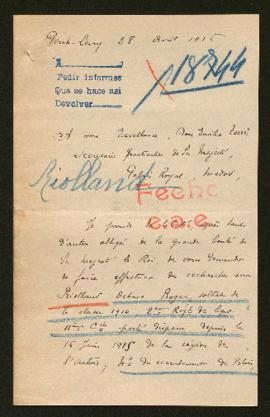 Pont-Levoy 28 Avril 1916
A
Pedir informes
Que se hace asi
Devolver
18744
A son Excellence, Don Emilio
Secrétaire Particulier de Sa Majesté,
Palais Royal, Madrid,
Riolland
Fecho
Je prends la après tant
d'autres obligés de la grande bonté de
Sa Majesté le Roi, de vous demander
de faire effectuer des recherches sur
Riolland Octave Roger, soldat de
la classe 1914 2me Régt de
11ème Cie porté disparu depuis le
16 Juin 1915 de la région de
l'Artois, No du recrutement de Blois,